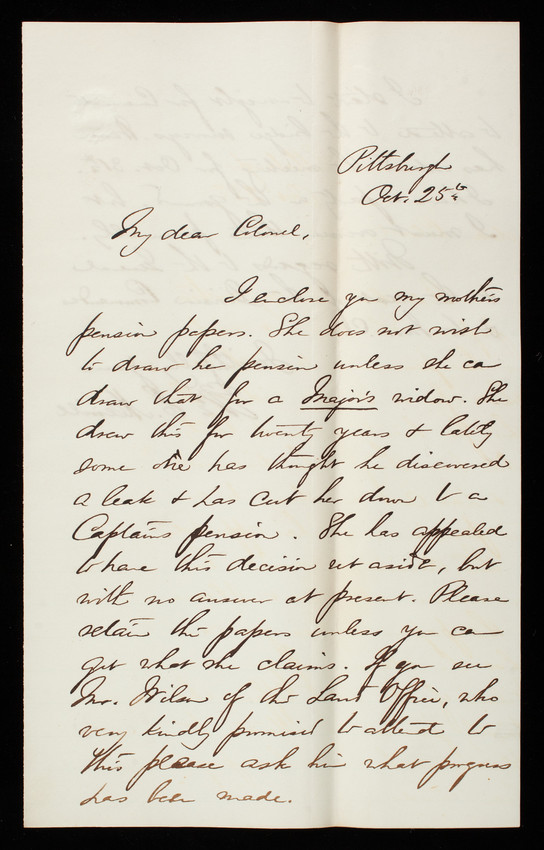 Pittsburgh
Oct. 25th
My dear Colonel,
I enclose you my mothers
pension papers. She does not wish
to draw he pension unless she ca
draw that for a Major's widow. She
drew this for twenty years & lately
some one has thought he discovered
a leak & has cut her down to a
Captains pension. She has appealed
to have this decision set aside, but
with no answer at present. Please
retain the papers unless you ca
get what she claims. If you see
Mr. Wilson of the Land Office, who
very kindly promised to attend to
this please ask him what progress
has been made.